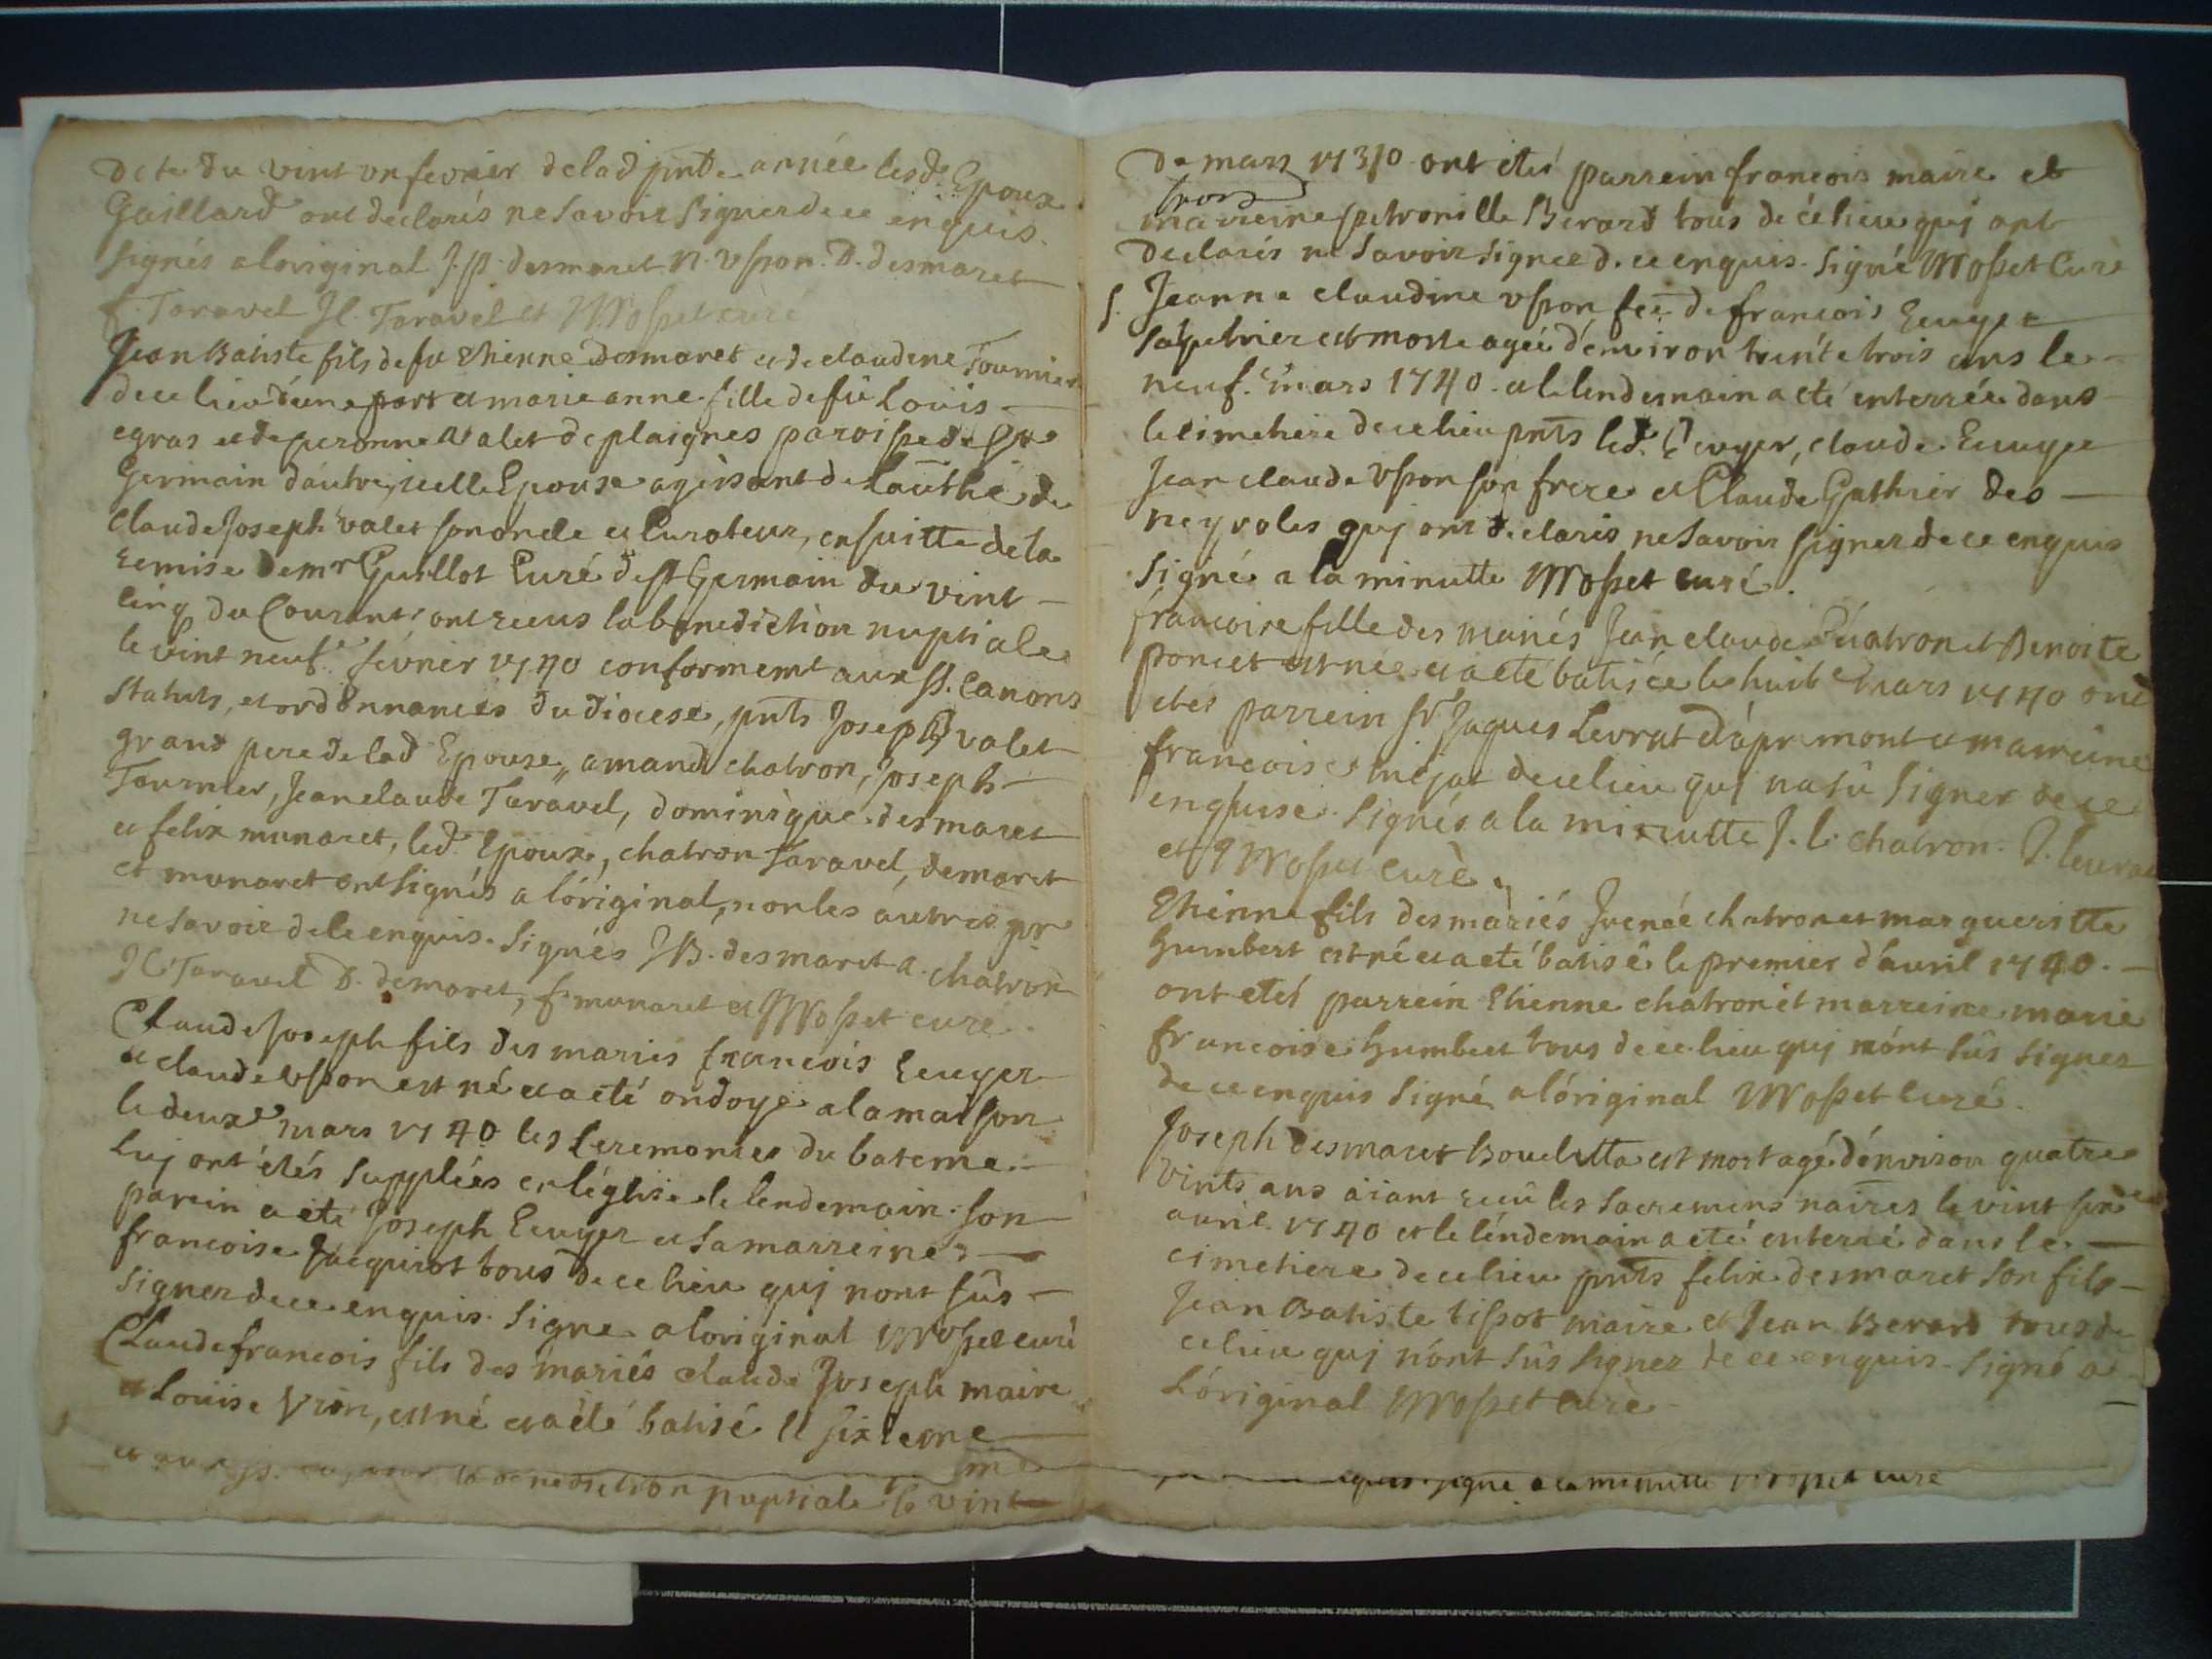 date du vint un fevrier de lad pnte année lesd. Epoux
Gaillard ont declarés ne savoir signer de ce enquis.
signés a loriginal J. p. desmaret n. vsson. D. desmaret
f. Taravel Jl. Taravel et Mosset curé
Jean Batiste fils de fu Etienne Desmaret et de claudine Tournier
de ce lieu d'une part et marie anne fille de fû Loüis
egras et de peronne Valet de plaignes paroisse de St
Germain d'autre, icelle Epouse agissant de Lauthé de
Claude Joseph valet son oncle et Curateur, ensuitte de la
remise de mr Guillot Curé de St Germain du vint
cinq du Courant ont receus la benediction nuptiale
le vint neuf.e février 1740 conformemt aux SS. Canons
statuts, et ordonnances du diocese, pnts Joseph valet
grand pere de lad Epouse, amand chatron, Joseph
Tournier, Jean claude Taravel, dominique desmaret
et felix munaret, led. Epoux, chatron Taravel, demaret
et munaret ont signés a l'original, non les autres pr
ne savoir de le enquis. Signés J B. desmaret a. chatron
J C Taravel D. demaret, f. munaret et Mosset curé.
Claude Joseph fils des mariés francois Ecuyer
et claude vsson est né et a eté ondoyé a la maison
le deuxe mars 1740 les Ceremonies du bateme
luy ont étés supplées en léglise le lendemain. son
parein a eté Joseph Ecuyer et sa marreine
francoise Jacquiot tous de ce lieu qui nont sûs
signer de ce enquis. Signe a loriginal Mosset curé
Claude francois fils des mariés claude Joseph maire
et Loüise Vion, est né et a été batisé le sixieme
la benediction nuptiale le vint
de mars 1740 ont etés parrein francois maire et
marreine petronille Berard tous de ce lieu qui ont
declarés ne savoir signer de ce enquis. Signé Mosset Curé
S. Jeanne claudine vsson fee de francois Ecuyer
salpetrier est morte agée d'environ trente trois ans le
neuf.e mars 1740. et le lendemain a eté enterrée dans
le cimetiere de ce lieu pnts led. Ecuyer, claude Ecuyer
Jean claude vsson son frere et Claude Guthier des
neyroles qui ont declarés ne savoir signer de ce enquis
signé a la minutte Mosset curé.
francoise fille des mariés Jean claude Chatron et Benoite
poncet est née et a eté batisée le huit.e mars 1740 ont
etés parrein Sr Jaques Levrat d'apremont et marreine
francoise mejat de ce lieu qui na su signer de ce
enquise. Signés a la minutte J. l. chatron. J. levrat
et Mosset curé.
Etienne fils des mariés Irenée chatron et marguerïtte
humbert est né et a eté batisé le premier d'avril 1740.
ont etés parrein Etienne chatron et marreine marie
francoise humbert tous de ce lieu qui nónt sûs signer
de ce enquis signé a l'original Mosset curé.
Joseph desmaret Bouclutta est mort agé d'environ quatre
vints ans aiant receu les Sacremens naires le vint
avril 1740 et le lendemain a eté enterré dans le
cimetiere de ce lieu pnts felix desmaret son fils
Jean Batiste tissot maire et Jean Berard tous de
ce lieu qui n'ont sûs signer de ce enquis. Signé a
L'original Mosset curé.
signé a la minutte Mosset curé